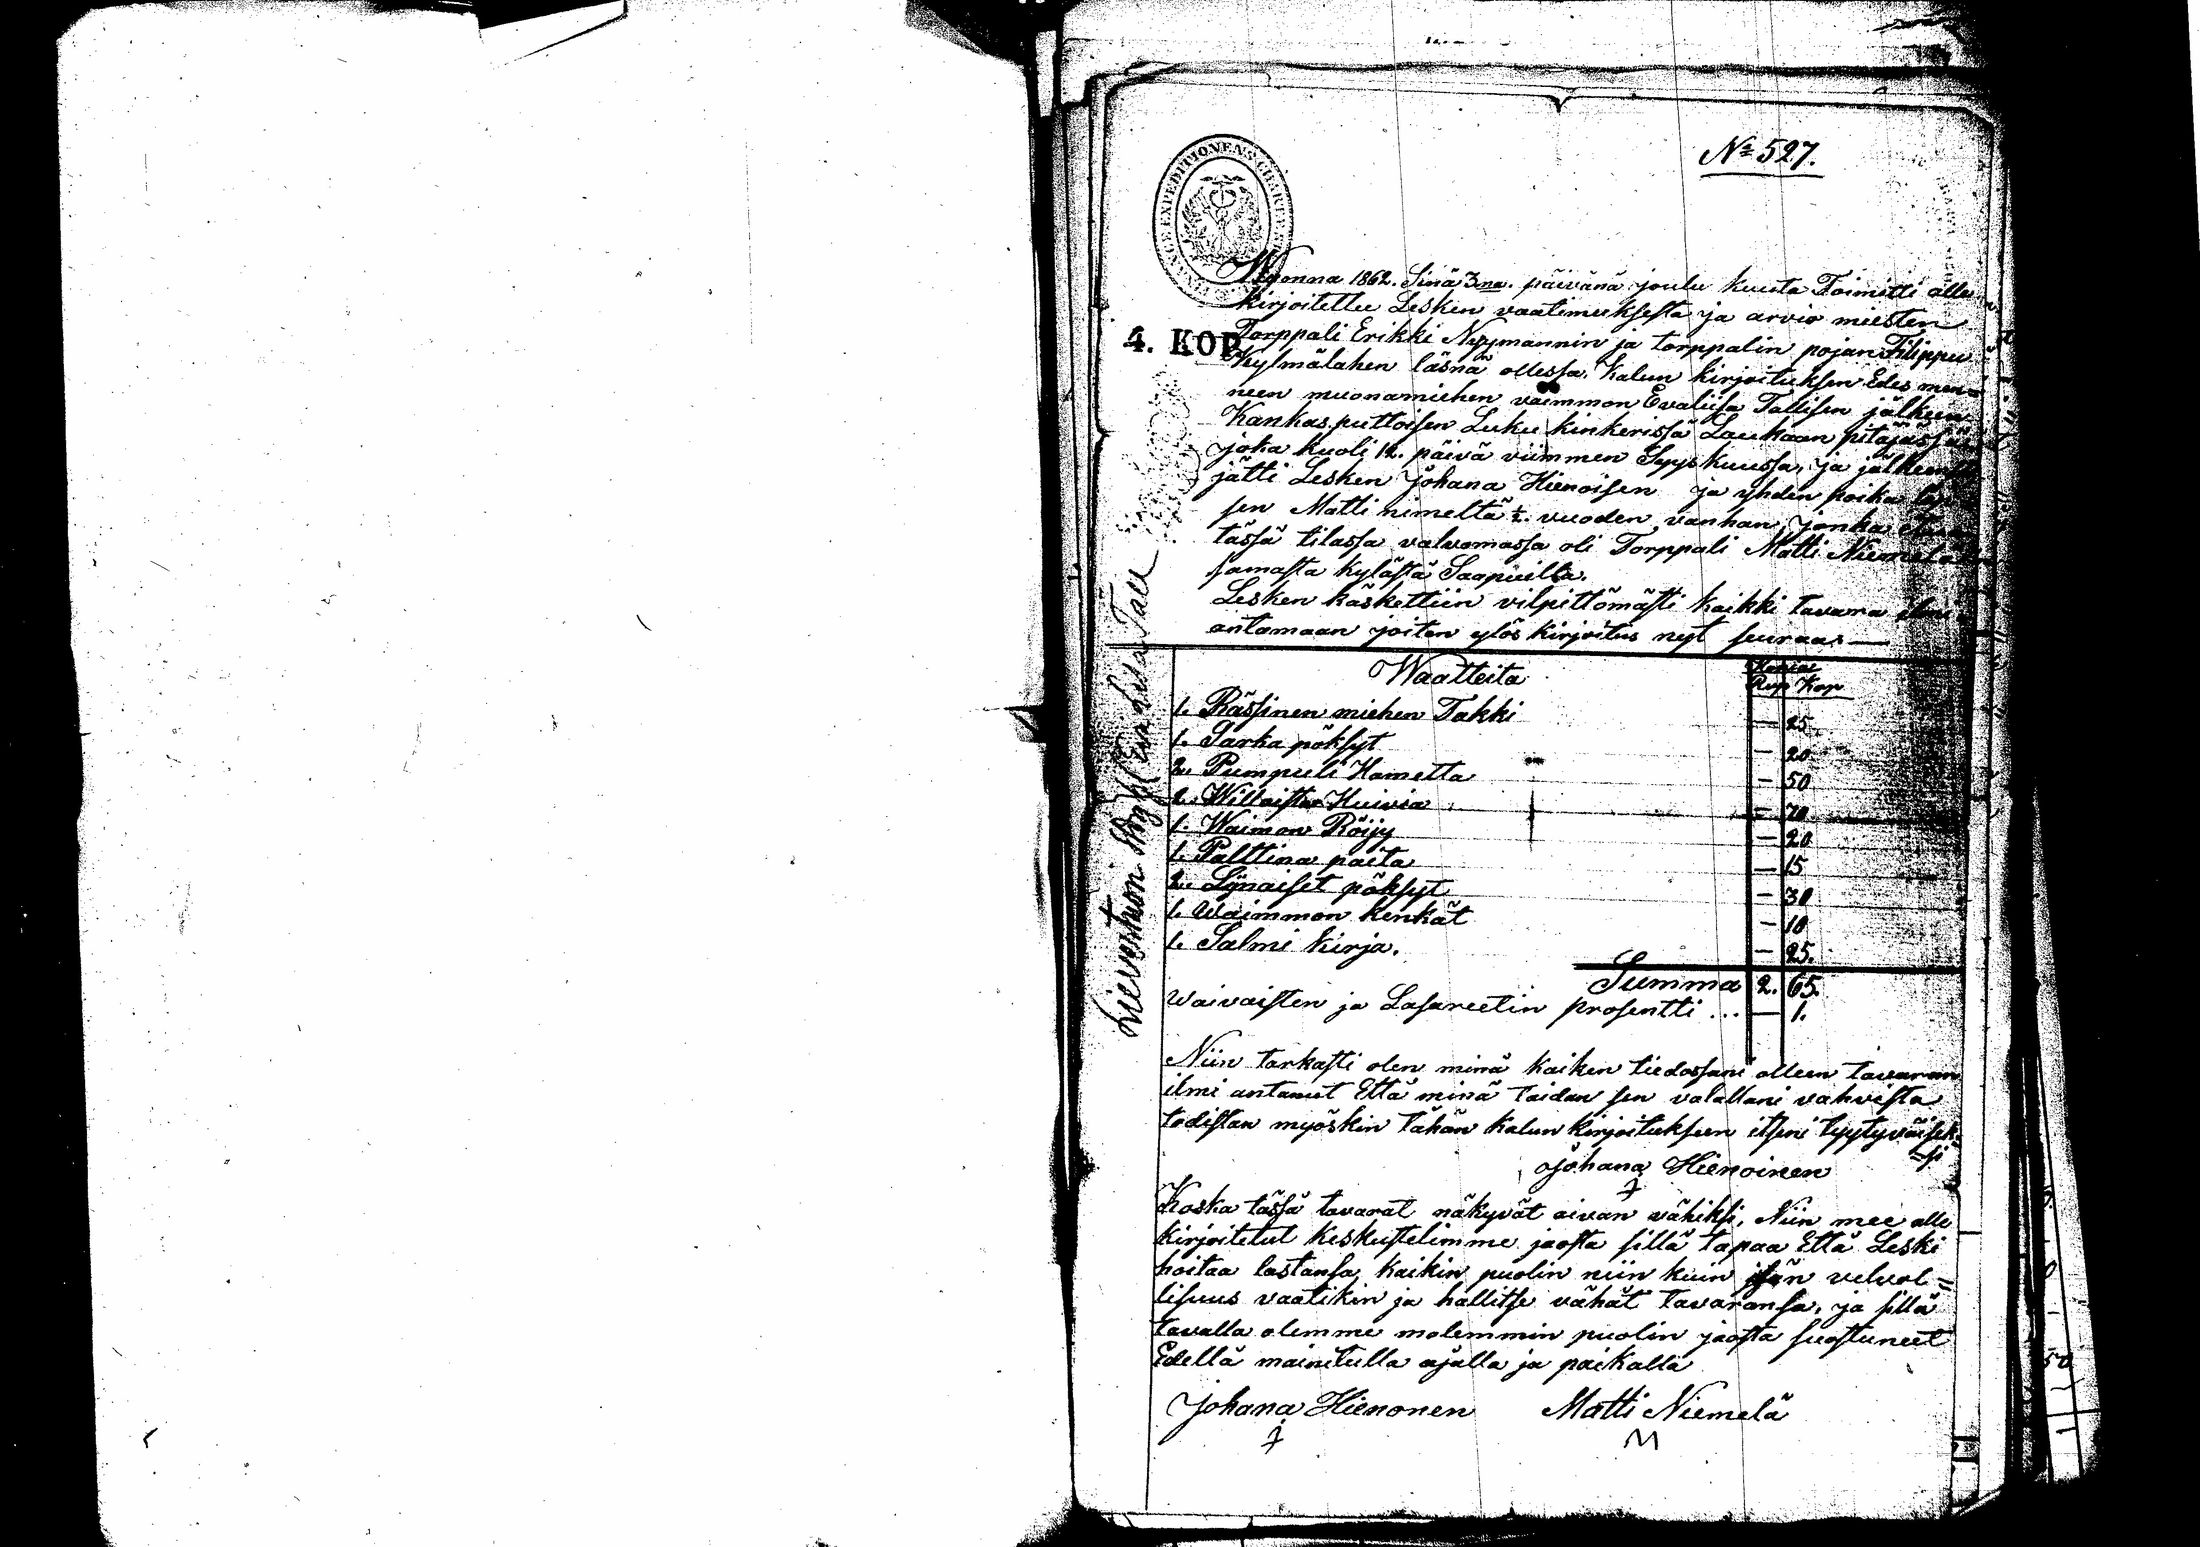 No 527.
4. KOP
Wuonna 1862. Sinä 3na. päivänä joulu kuuta Toimitti alle
kirjoitettu Lesken vaatimuksesta ja arvio miesten
Torppali Erikki Nyymannin ja torppalin pojan Filippu
Kylmälahen läsnä ollessa. Kalun kirjoituksen Edes men=
neen muonamiehen vaimmon Evaliisa Tallisen jälkeen
Kankas puttoisen Luku kinkerissä Laukaan pitäjässä
joka kuoli 12. päivä viimmen Syys kuussa, ja jälkeensä
jätti Lesken Johana Hienoisen ja yhden poika
sen Matti nimeltä ½. vuoden vanhan, jonka
tässä tilassa valvomassa oli Torppali Matti Niemelä
samasta kylästä Saapuilla.
Lesken käskettiin vilpittömästi kaikki tavara ilmi
antamaan joiten ylös kirjoitus nyt seuraa. —
Waatteita
Rup Kop
1. Rässinen miehen Takki — 25.
1. Sarka pöksyt — 20
2. Pumpuli Hametta — 50
2. Willaista Huivia — 70
1. Waimon Röijy — 20
1. Palttina paita — 15
2. Liinaiset pöksyt — 30
1. Waimmon kenkät — 10
1. Salmi kirja. — 25.
Summa 2. 65.
Waivaisten ja Lasareetin prosentti ... — 1.
Niin tarkasti olen minä kaiken tiedossani olleen tavaran
ilmi antanut Että minä taidan sen valallani vahvista
todistan myöskin tähän kalun kirjoitukseen itseni tyytyväisek=
=si
Johana Hienoinen
Koska tässä tavarat näkyvät aivan vähiksi, Niin mee alle
kirjoitetut keskustelimme jaosta sillä tapaa Että Leski
hoitaa lastansa kaikin puolin niin kuin isän velvol=
lisuus vaatikin ja hallitse vähät tavaransa, ja sillä
tavalla olemme molemmin puolin jaosta suostuneet
Edellä mainitulla ajalla ja paikalla
Johana Hienonen Matti Niemelä
M